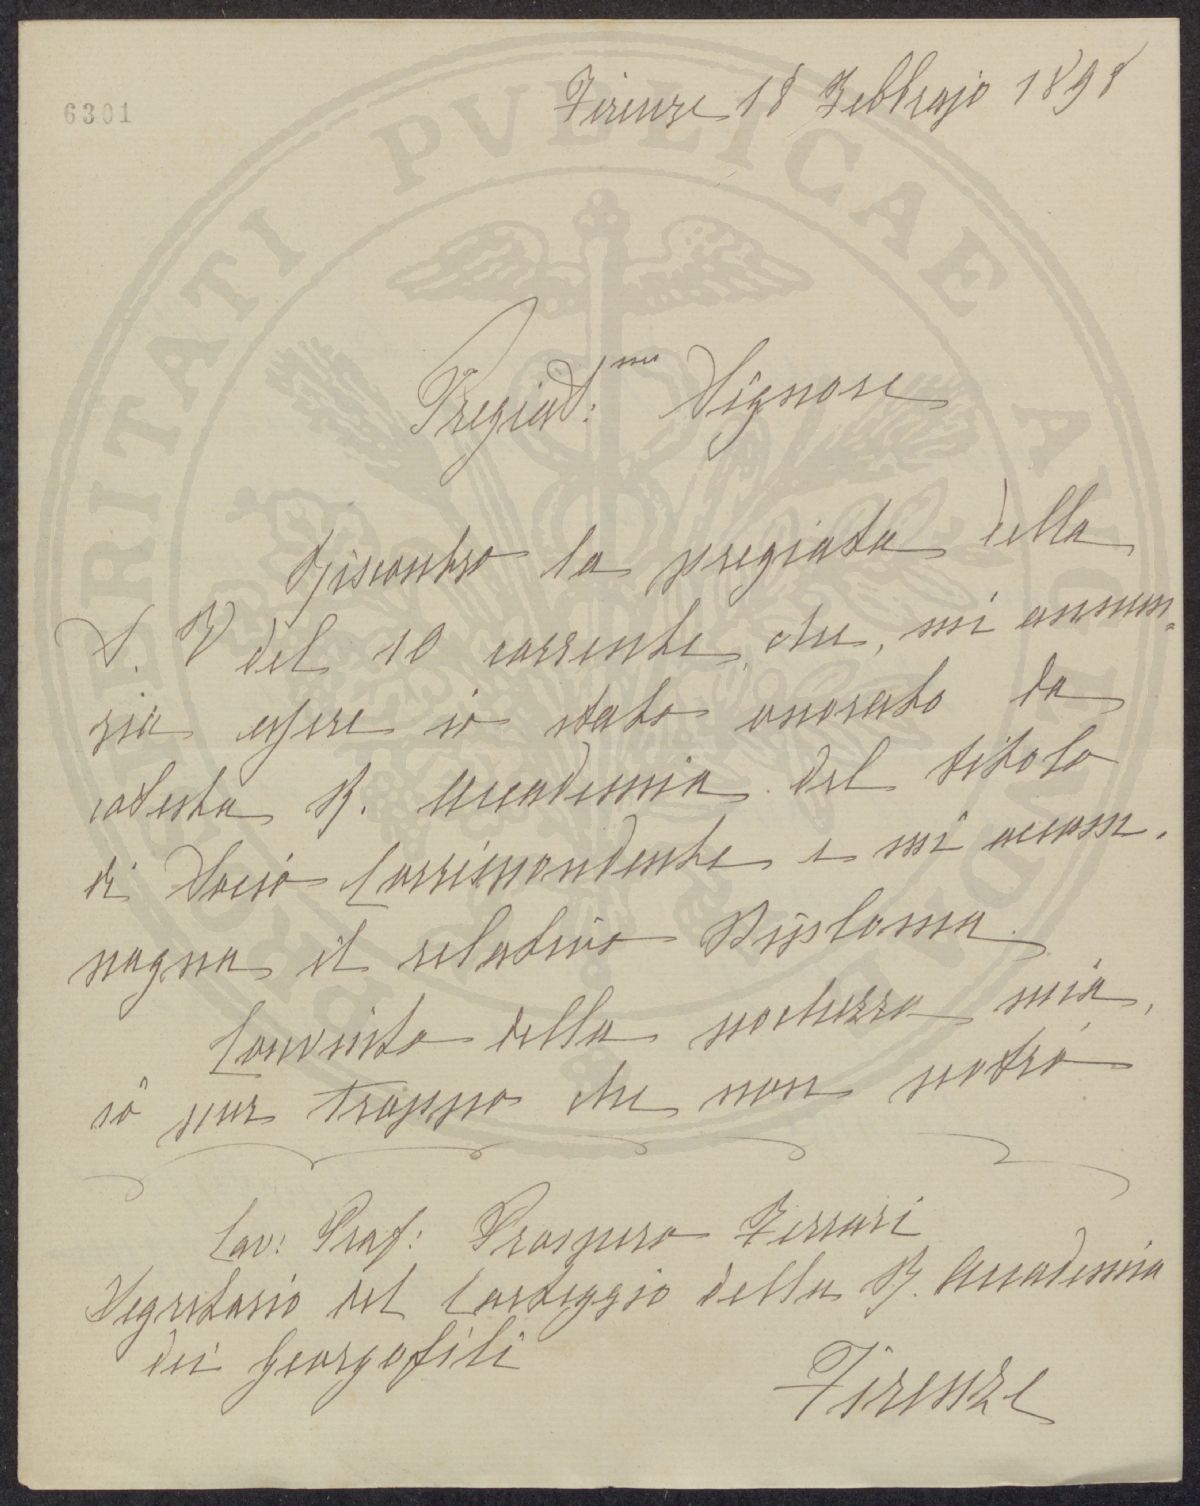 6301
Firenze 18 Febbrajo 1898
Pregiat:mo Signore
Riscontro la pregiata della
S. V del 10 corrente, che, mi annun-
zia essere io stato onorato da
codesta R. Accademia del titolo
di Socio Corrispondente e mi accom-
pagna il relativo Diploma.
Convinto della pochezza mia,
sò pur troppo che non potrò
Cav: Prof: Prospero Ferrari
Segretario del Carteggio della R. Accademia
dei Georgofili
Firenze
PROSPERITATI PVBLICAE AVGENDAE